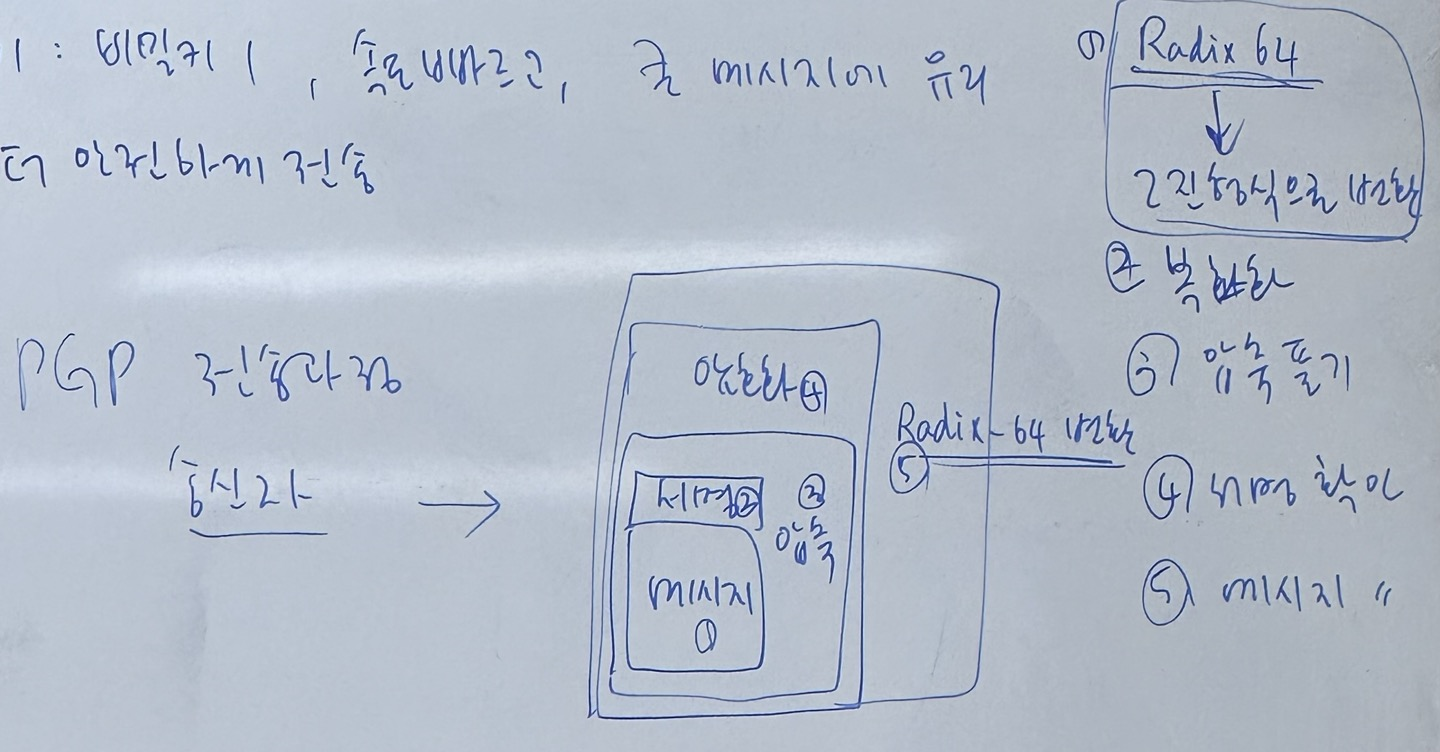 1 : 비밀키 1, 속도 빠르고, 큰 메시지에 유리
더 안전하게 전송
PGP 전송과정
송신자 →
암호화 ④
서명 ②
③
압축
메시지
①
Radix-64 변환
⑤
① Radix 64
↓
2진형식으로 변환
② 복호화
③ 압축 풀기
④ 서명 확인
⑤ 메시지 〃